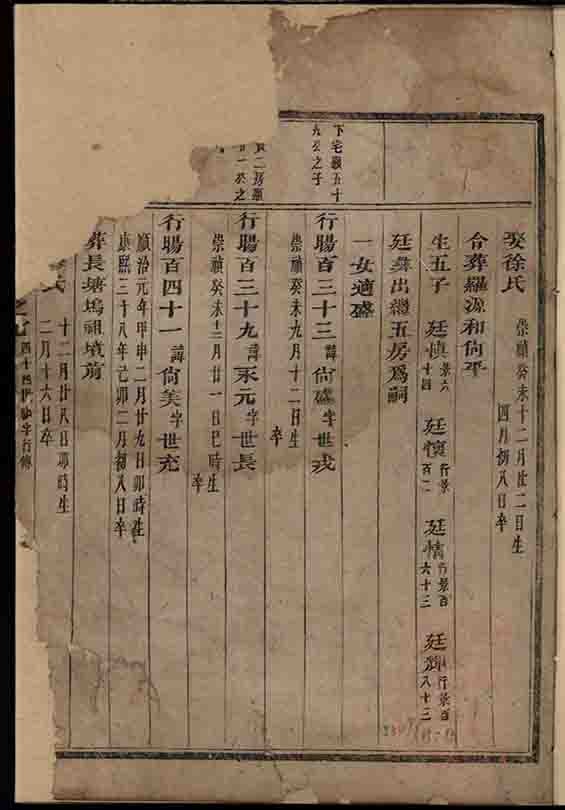 娶徐氏 崇禎癸未十二月廿二日生
四月初八日卒
合葬羅源和尙平
生五子 廷慎 景六十四 廷懷 行景百二 廷情 行景百六十三 廷 行景百八十三
廷彝出繼五房爲嗣
一女適盛
下宅 五十
九公之子
行賜百三十三 諱尙盛字世戎
崇禎癸未九月十二日生
卒
二房
一公之
行賜百三十九 諱永元字世長
崇禎癸未十二月廿一日巳時生
卒
行賜百四十一 諱尙美字世充
順治元年甲申二月廿九日卯時生
康熙三十八年己卯二月初八日卒
葬長塘塢祖墳前
氏 十二月廿八日卯時生
二月十六日卒
四十四世 字行傳